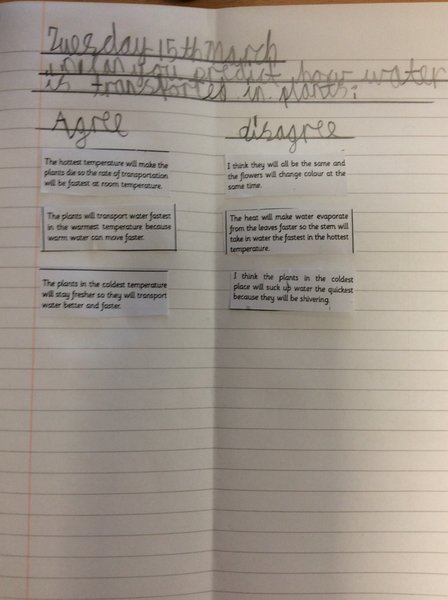 Tuesday 15th March
can you predict how water
is transported in plants?
Agree
disagree
The hottest temperature will make the
plants die so the rate of transportation
will be fastest at room temperature.
I think they will all be the same and
the flowers will change colour at the
same time.
The plants will transport water fastest
in the warmest temperature because
warm water can move faster.
The heat will make water evaporate
from the leaves faster so the stem will
take in water the fastest in the hottest
temperature.
The plants in the coldest temperature
will stay fresher so they will transport
water better and faster.
I think the plants in the coldest
place will suck up water the quickest
because they will be shivering.